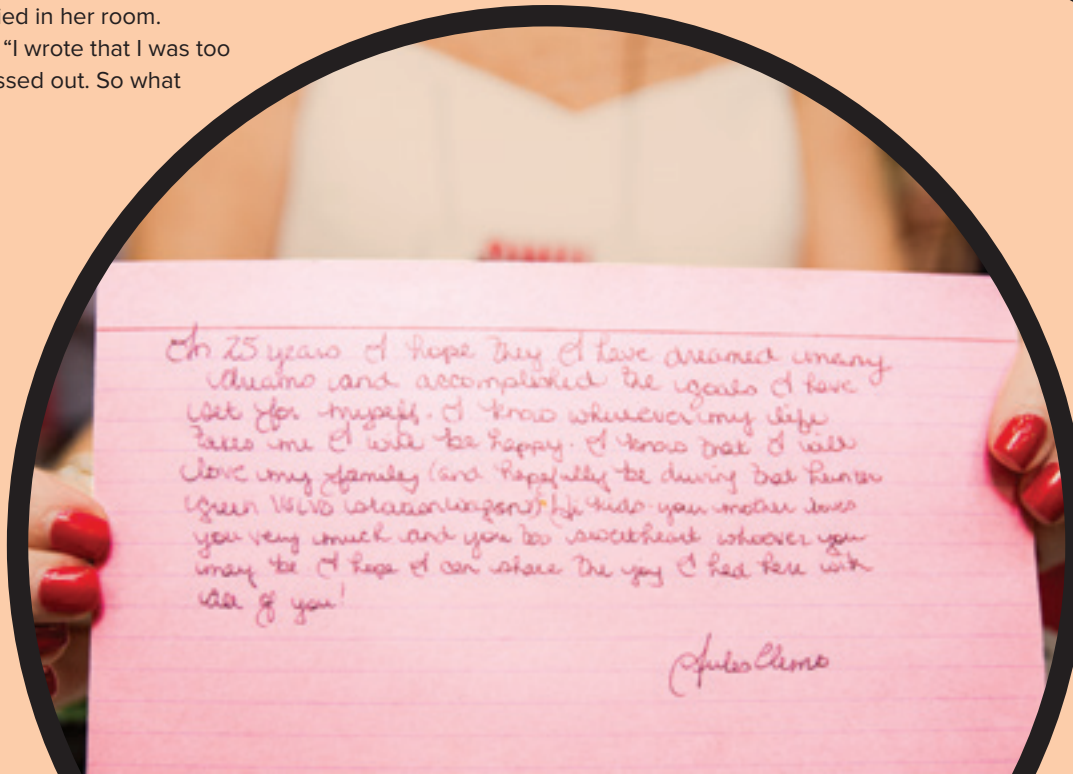 ied in her room.
“I wrote that I was too
ssed out. So what
In 25 years I hope they I have dreamed many
dreams and accomplished the goals I have
set for myself. I know wherever my life
takes me I will be happy. I know that I will
love my family (and hopefully be driving that hunter
green Volvo stationwagon) Hi kids-your mother loves
you very much and you too sweetheart whoever you
may be I hope I can share the joy I had here with
all of you!
Jules Clemo